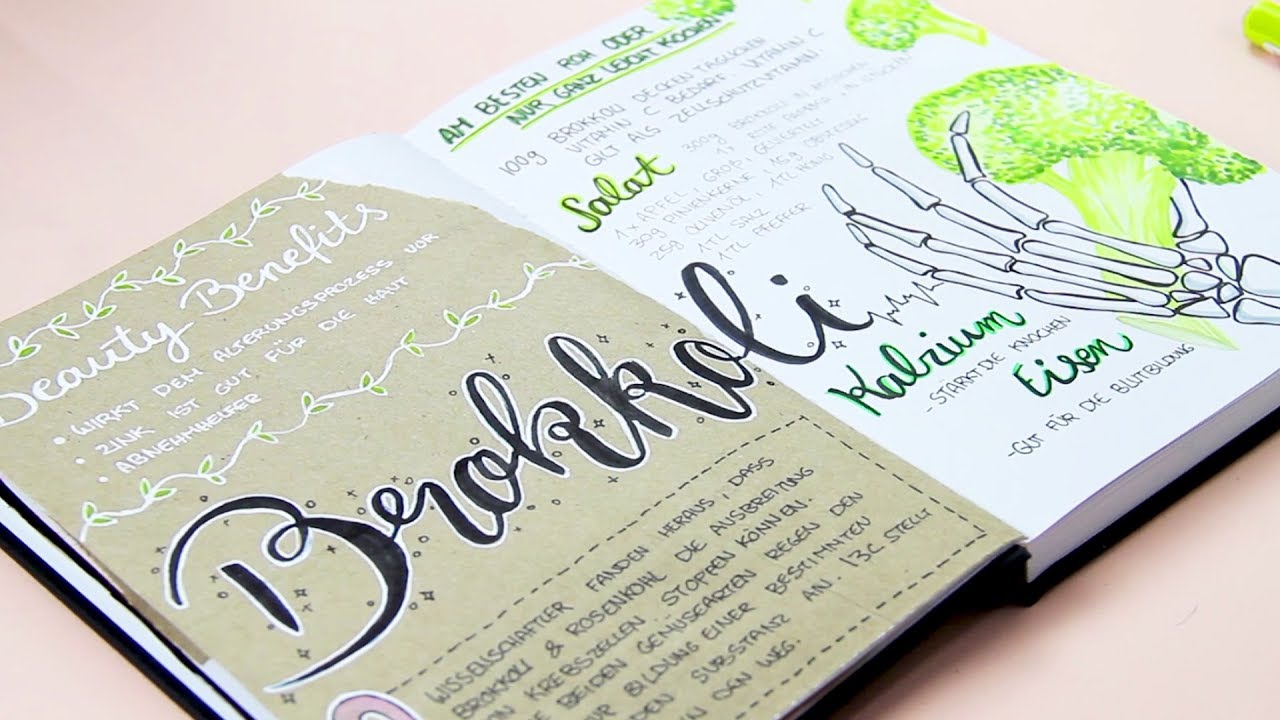 Beauty Benefits
• WIRKT DEM ALTERUNGSPROZESS VOR
• ZINK IST GUT FÜR DIE HAUT
• ABNEHMHELFER
Brokkoli
WISSELSCHAFTLER FANDEN HERAUS, DASS
BROKKOLI & ROSENKOHL DIE AUSBREITUNG
KREBSZELLEN STOPPEN KÖNNEN.
BEIDEN GENÜSEARTEN REGEN DEN
BILDUNG EINER BESTIMMTEN
SUBSTANZ AN. 13C STELLT
DAN WEG.
AM BESTEN ROH ODER
NUR GANZ LEICHT KOCHEN
100g BROKKOLI DECKEN TÄGLICHEN
VITAMIN C BEDARF. VITAMIN C
GILT ALS ZELLSCHUTZVITAMIN.
Salat
300g BROKKOLI IN RÖSCHEN
1x ROTE PAPRIKA, IN STÜCKEN
1x APFEL, GROß, GEVIERTELT
30g PINIENKERNE, 15g OBSTESSIG
25g OLIVENÖL, 1TL HONIG
1TL SALZ
1TL PFEFFER
Kalzium
- STÄRKT DIE KNOCHEN
Eisen
-GUT FÜR DIE BLUTBILDUNG